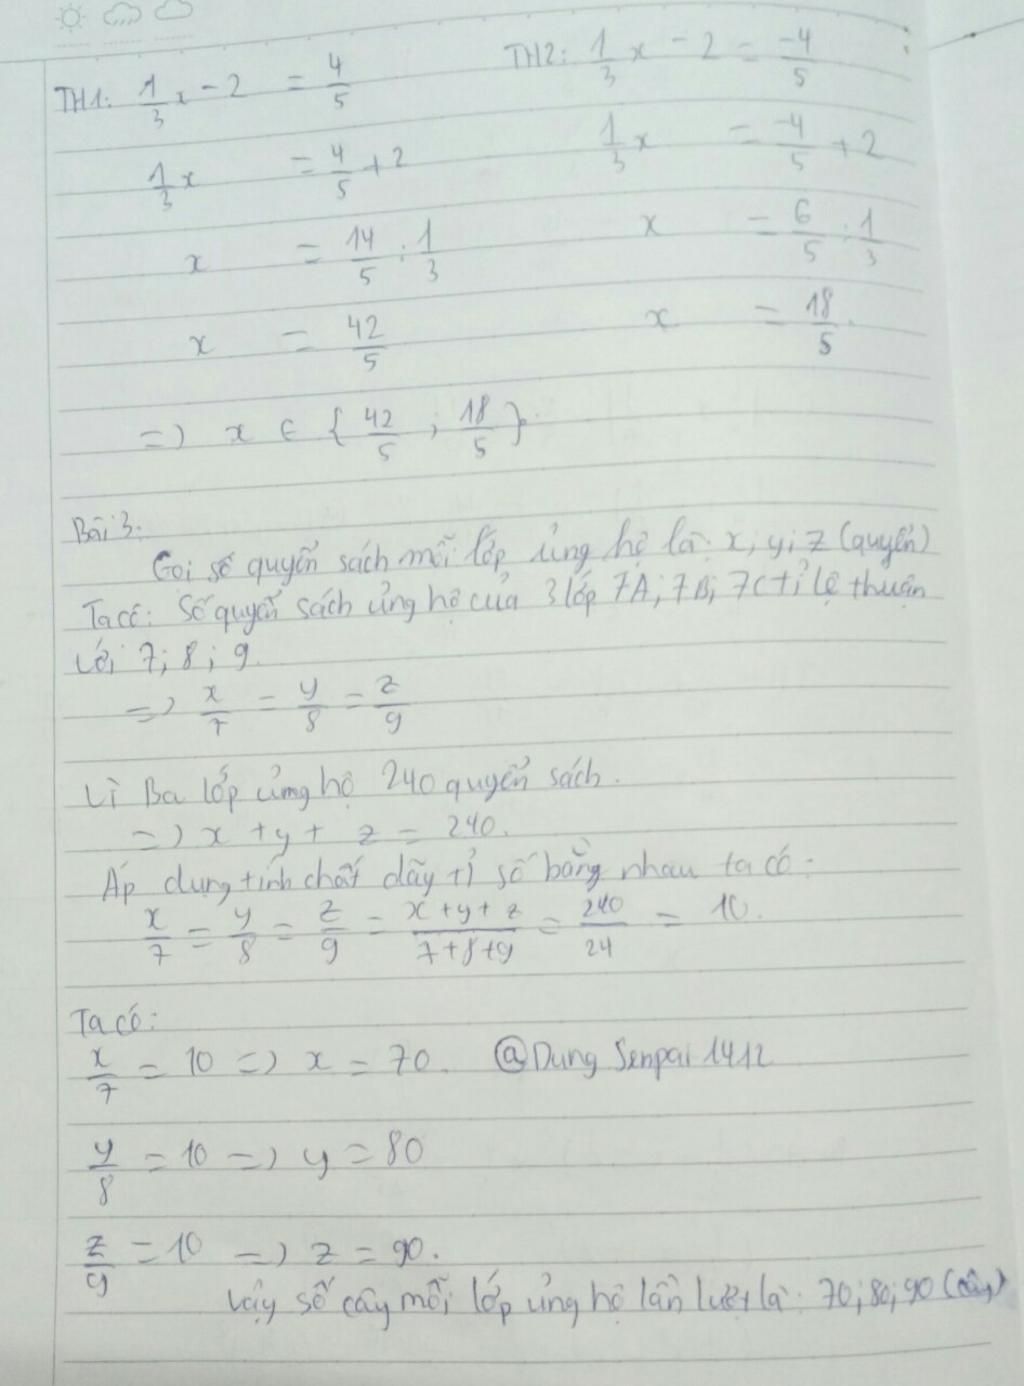 TH1: 1/3 x - 2 = 4/5
1/3 x = 4/5 + 2
x = 14/5 : 1/3
x = 42/5
TH2: 1/3 x - 2 = -4/5
1/3 x = -4/5 + 2
x = 6/5 : 1/3
x = 18/5.
=> x ∈ { 42/5 ; 18/5 }.
Bài 3.
Gọi số quyển sách mỗi lớp ủng hộ là: x; y; z (quyển)
Ta có: Số quyển sách ủng hộ của 3 lớp 7A; 7B; 7C tỉ lệ thuận
với 7; 8; 9.
=> x/7 = y/8 = z/9
Vì Ba lớp ủng hộ 240 quyển sách.
=> x + y + z = 240.
Áp dụng tính chất dãy tỉ số bằng nhau ta có:
x/7 = y/8 = z/9 = x+y+z/7+8+9 = 240/24 = 10.
Ta có:
x/7 = 10 => x = 70. @Dung Senpai 1412
y/8 = 10 => y = 80
z/9 = 10 => z = 90.
Vậy số cây mỗi lớp ủng hộ lần lượt là: 70; 80; 90 (cây)